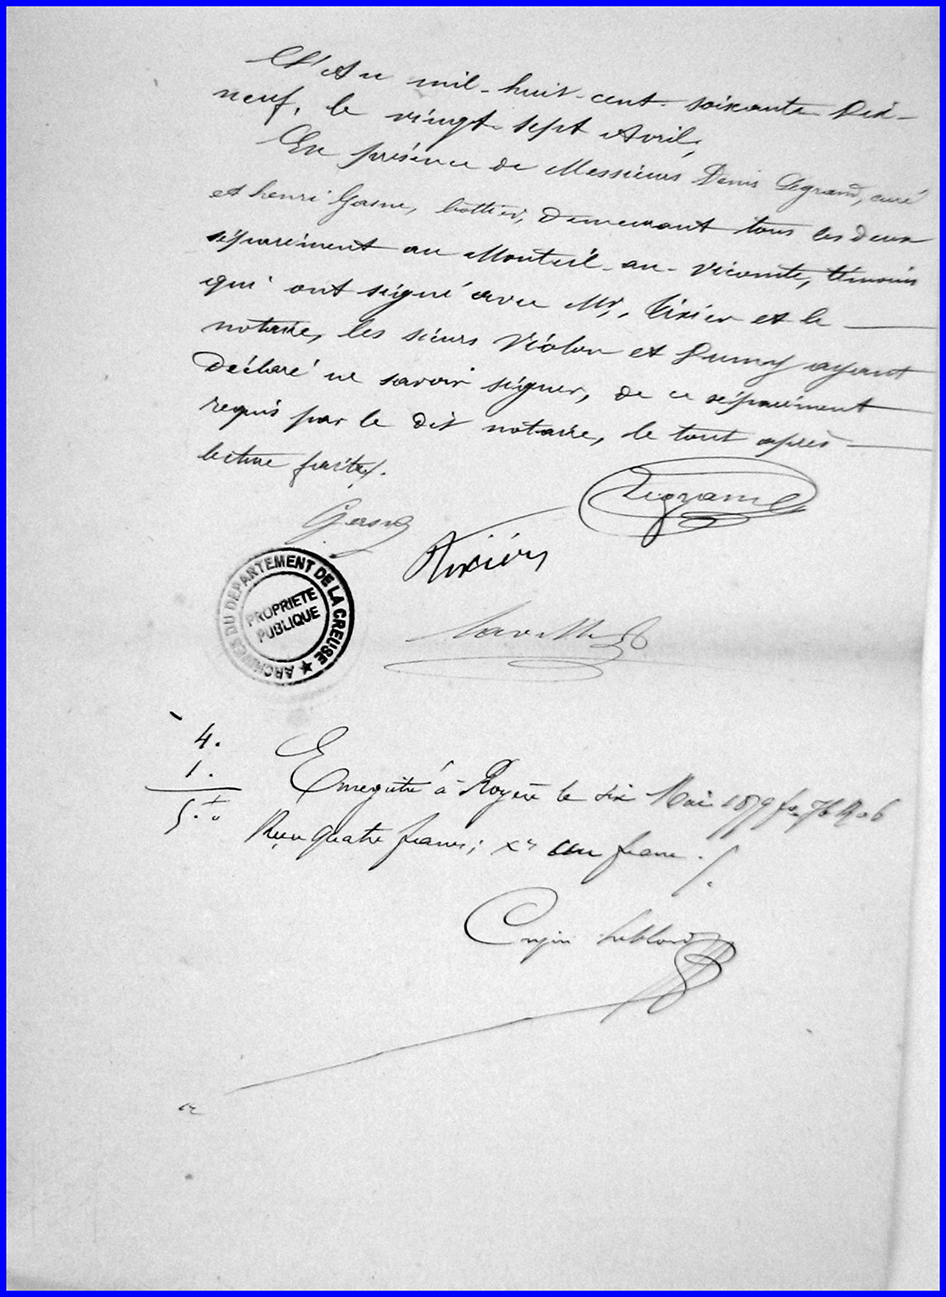 L'An mil-huit-cent-soixante Dix-
neuf, le vingt-sept Avril,
En présence de Messieurs Denis Legrand, curé
et henri Gasne, demeurant tous les deux
séparément au Monteil-au-Vicomte, témoins
qui ont signé avec Mr. Tixier et le
notaire, les sieurs Violon et Dumy ayant
déclaré ne savoir signer, de ce séparément
requis par le dit notaire, le tout après
lecture faite.
Gasne
Legrand
Tixier
ARCHIVES DU DEPARTEMENT DE LA CREUSE ★
PROPRIETE
PUBLIQUE
4.
1.
5.
Enregistré à Royère le six Mai 1879 fo 76
Reçu quatre francs; un franc.